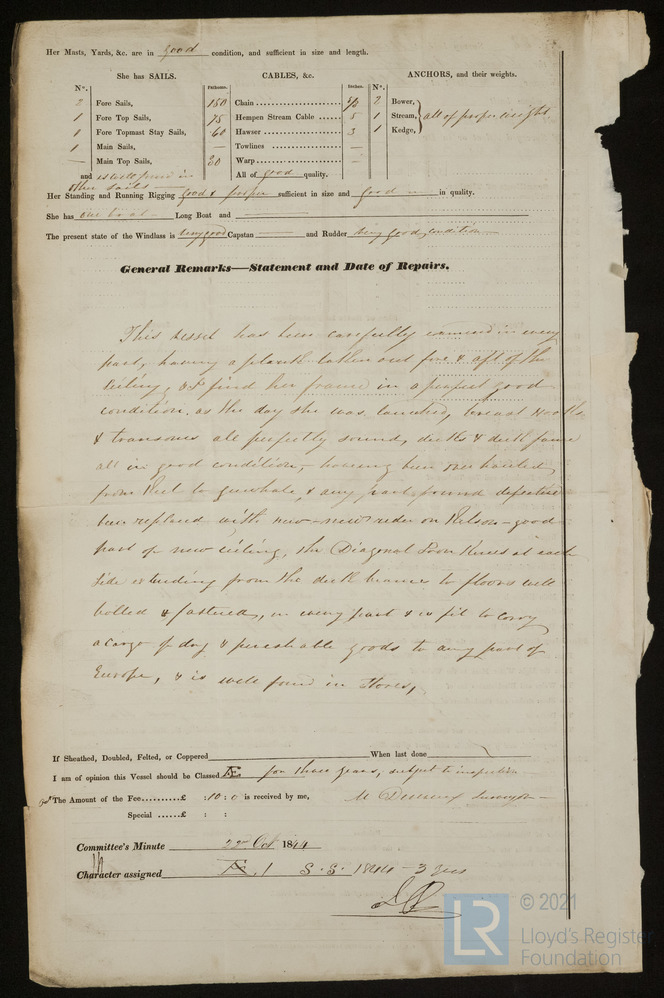 Her Masts, Yards, &c. are in good condition, and sufficient in size and length.
She has SAILS. CABLES, &c. ANCHORS, and their weights.
N°. Fathoms. Inches. N°.
2 Fore Sails, 150 Chain 2 Bower,
1 Fore Top Sails, 75 Hempen Stream Cable 5 1 Stream, all of proper weight.
1 Fore Topmast Stay Sails, 60 Hawser 3 1 Kedge,
1 Main Sails, — Towlines —
— Main Top Sails, 80 Warp —
and is well found in All of good quality.
other sails
Her Standing and Running Rigging good & proper sufficient in size and good in quality.
She has one boat Long Boat and
The present state of the Windlass is very good Capstan and Rudder very good condition
General Remarks—Statement and Date of Repairs.
This vessel has been carefully examined in every
part, having a plank taken out fore & aft of the
Ceiling, & I find her frame in a perfect good
condition, as the day she was launched, breast hooks
& transoms all perfectly sound, decks & deck frame
all in good condition, having been over hauled
from keel to gunwhale, & any part found defective
been replaced with new – new rider on Kelson – good
part of new ceiling, the Diagonal Iron Knees at each
side extending from the deck beams to floors well
bolted & fastened, in every part & is fit to carry
a cargo of dry & perishable goods to any part of
Europe, & is well found in stores,
If Sheathed, Doubled, Felted, or Coppered When last done
I am of opinion this Vessel should be Classed Æ for three years, subject to inspection
The Amount of the Fee £ :10:0 is received by me,
Surveyor
Special £ : :
Committee's Minute 22nd Oct 1844
Character assigned Æ 1 S.S. 1844 – 3 yrs
LR
© 2021
Lloyd's Register
Foundation